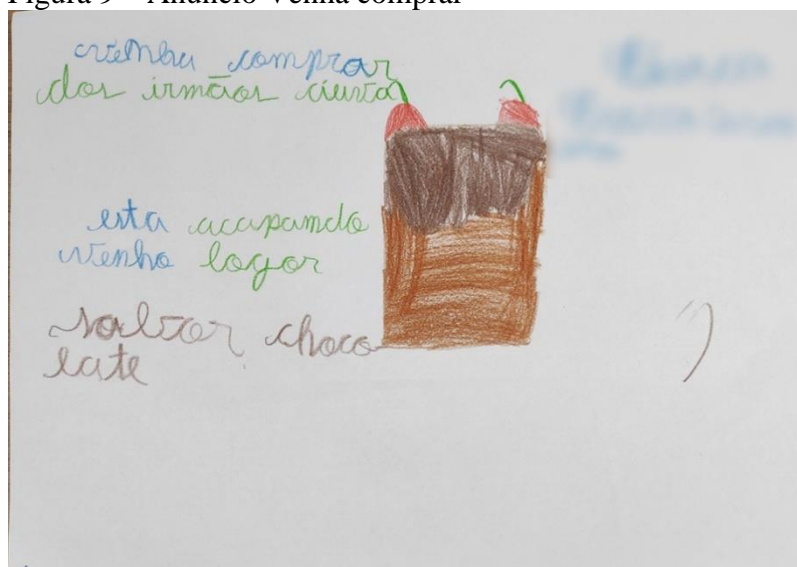 Figura 9 – Anúncio Venha comprar
venha comprar
dos irmãos ciusta
esta acapando
venha logor
sabor choco
late